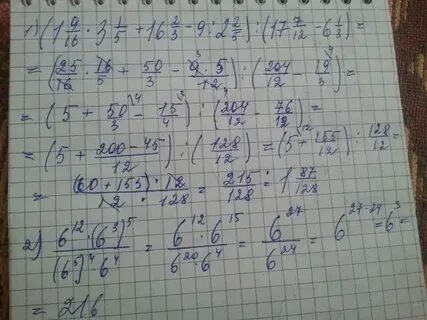 1) (1 9/16 · 3 1/5 + 16 2/3 - 9 : 2 2/5) : (17 7/12 - 6 1/3) =
= (25 · 16 / 16 · 5 + 50/3 - 9 · 5 / 12) : (204/12 - 19/3) =
= (5 + 50/3 - 15/4) : (204/12 - 76/12) =
= (5 + 200-45/12) : (128/12) = (5 + 155/12) : 128/12 =
= (60 + 155) · 12 / 12 · 128 = 215/128 = 1 87/128
2) 6^12 · (6^3)^5 / (6^5)^4 · 6^4 = 6^12 · 6^15 / 6^20 · 6^4 = 6^27 / 6^24 = 6^27-24 = 6^3
= 216